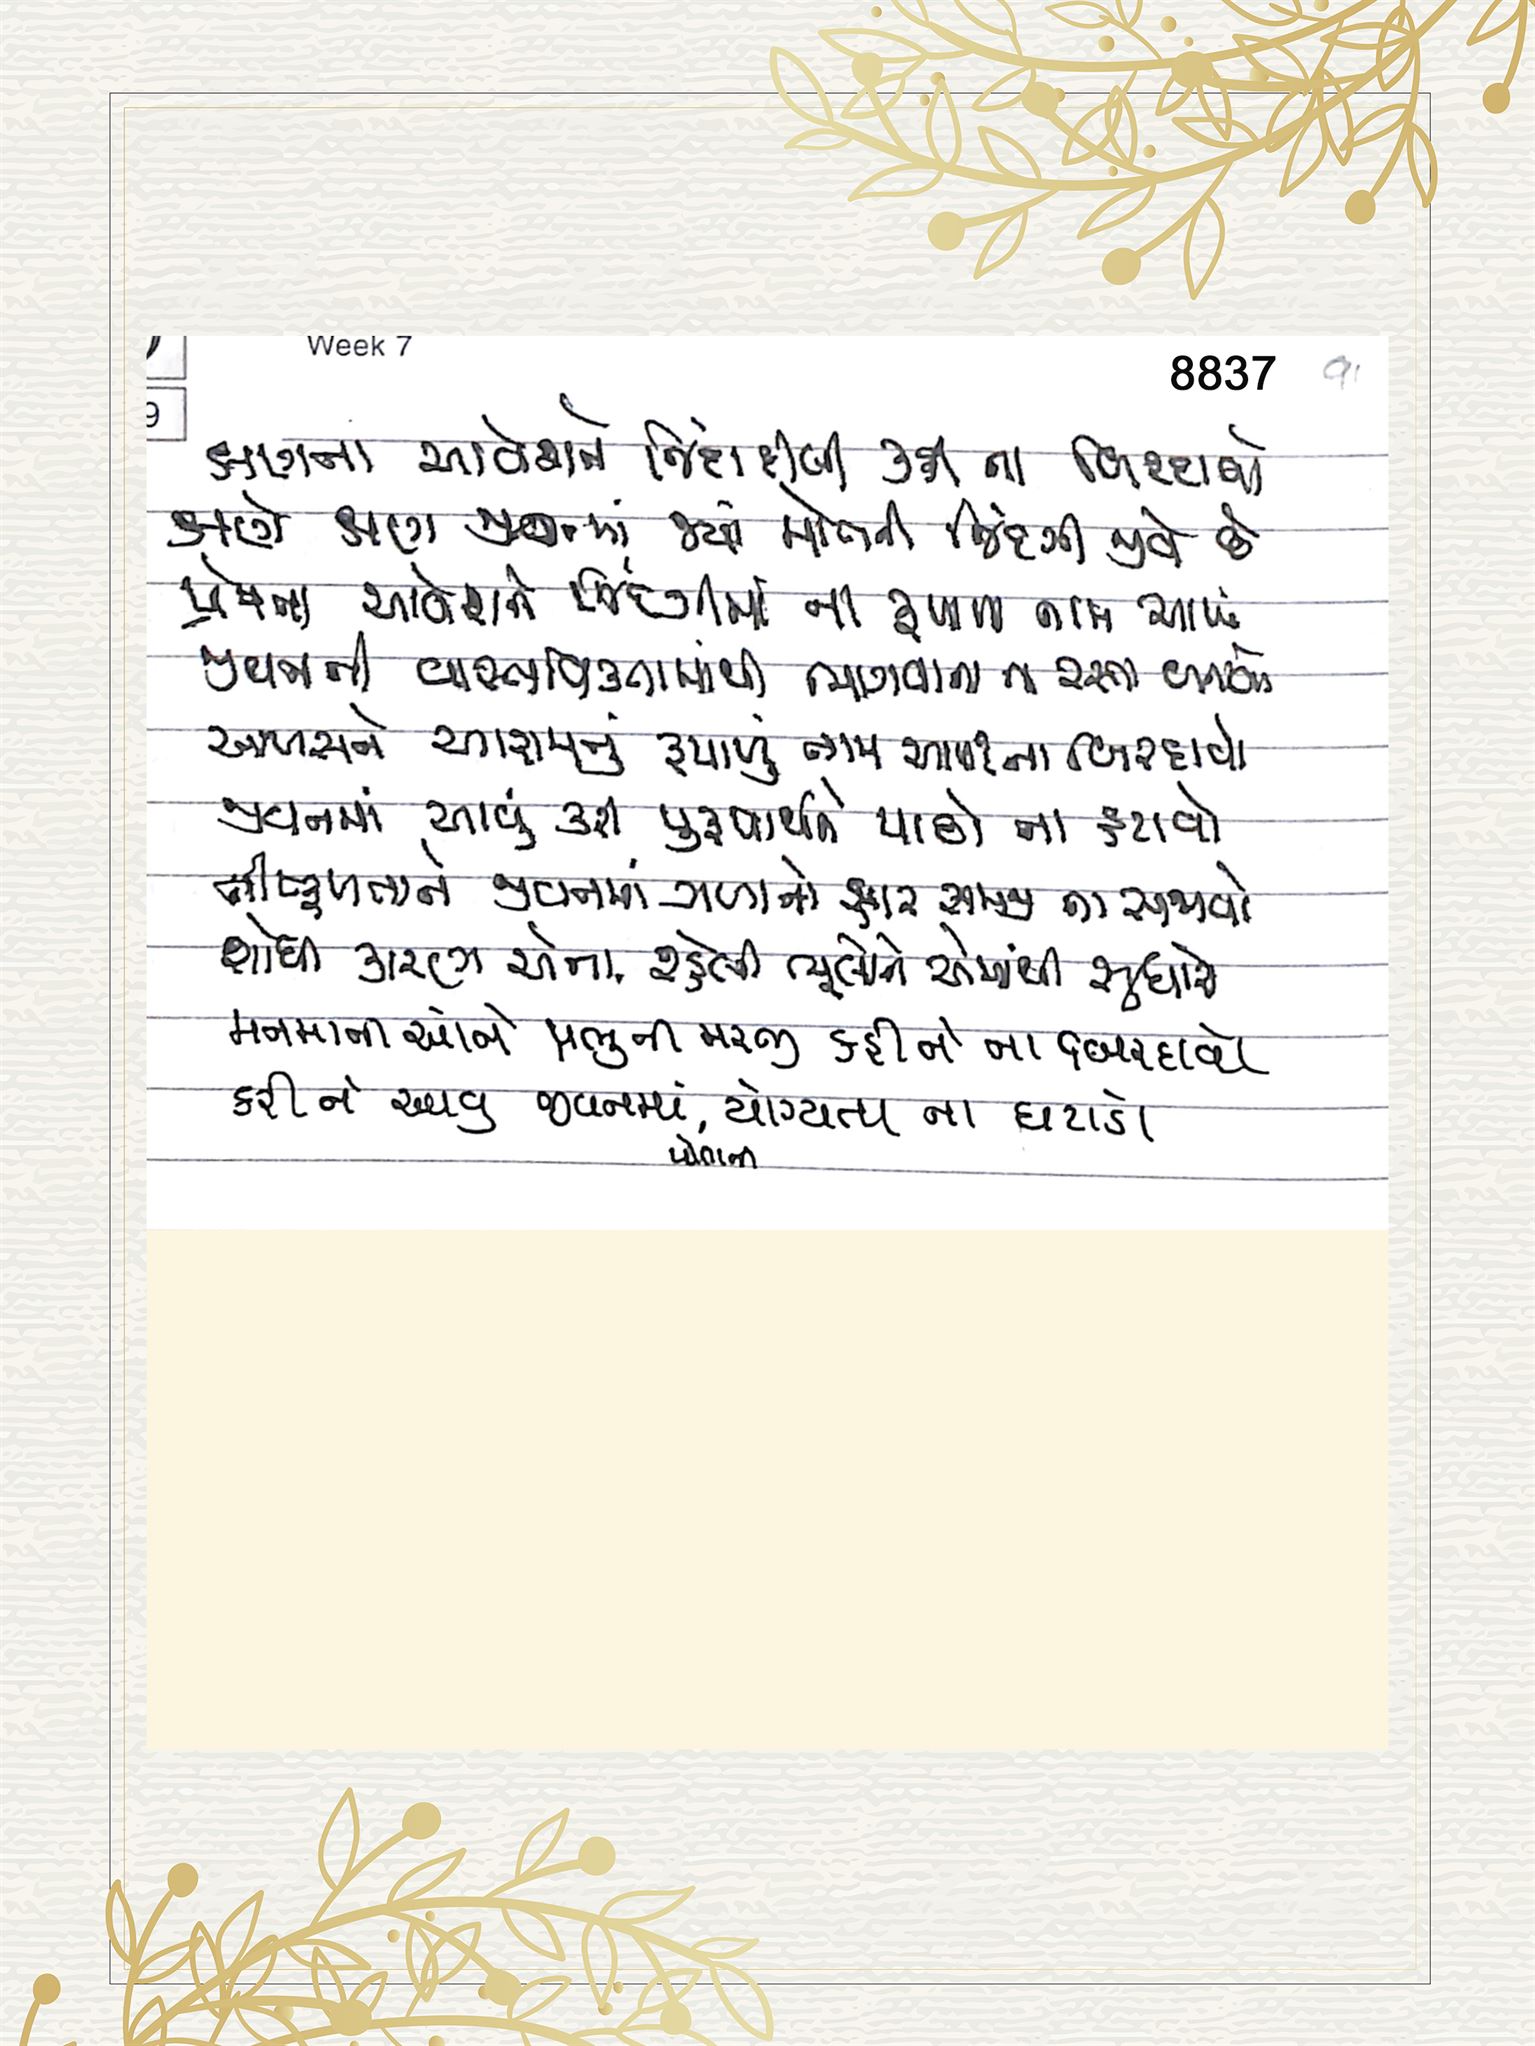 Week 7
8837
9
ક્ષણના આવેશને જિંદાદીલી કહી ના બિરદાવો
ક્ષણે ક્ષણ જીવનમાં જ્યાં મોતની જિંદગી જીવે છે
પ્રેમના આવેશને જિંદગીમાં ની નામ
જીવનની વાસ્તવિકતામાંથી ભાગવાના ના રસ્તા
આળસને આરામનું રૂપાળું નામ આપી ના બિરદાવો
જીવનમાં આવું કરી પુરુષાર્થને પાછો ના હટાવો
નીષ્ફળતાને જીવનમાં ગળાનો હાર સમજી ના સજાવો
શોધી કારણ એના, રહેલી ભૂલોને એમાંથી સુધારો
મનમાની ઓને પ્રભુની મરજી કહીને ના બિરદાવો
કરીને આવુ જીવનમાં, યોગ્યતા ના ઘટાડો
પોતાની